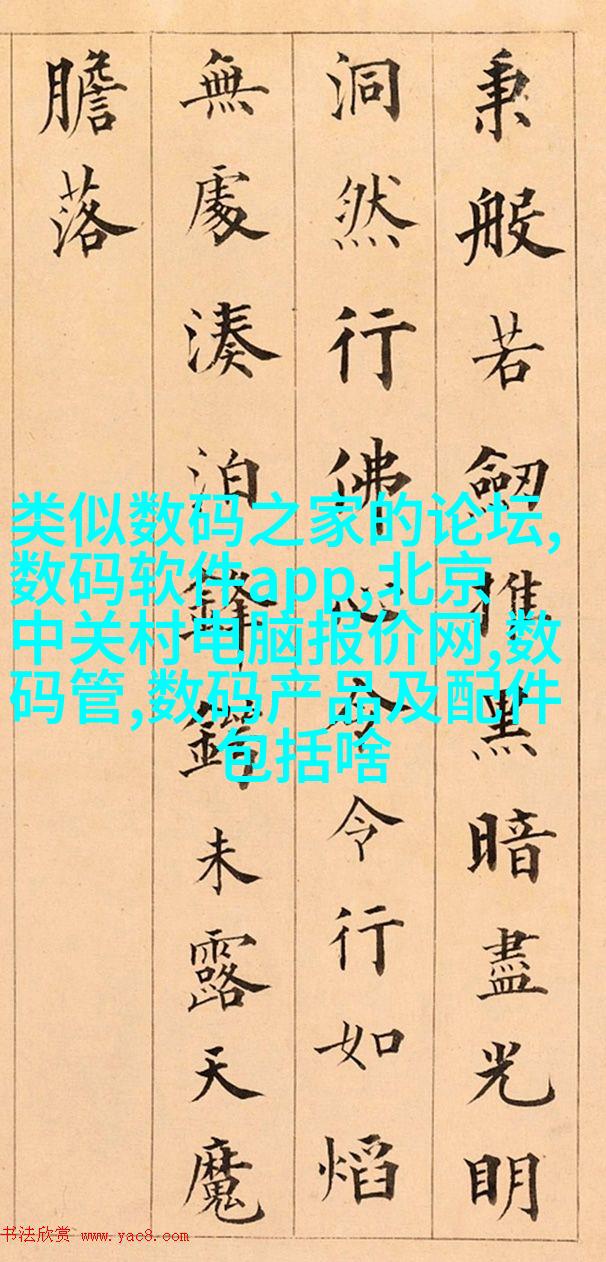 秉般若劒摧黑暗盡光明
洞然行佛心令令行如焰
無處湊泊鋒鍔未露天魔
膽落
类似数码之家的论坛,
数码软件app,北京
中关村电脑报价网,数
码管,数码产品及配件
包括啥
书法欣赏 www.yac8.com